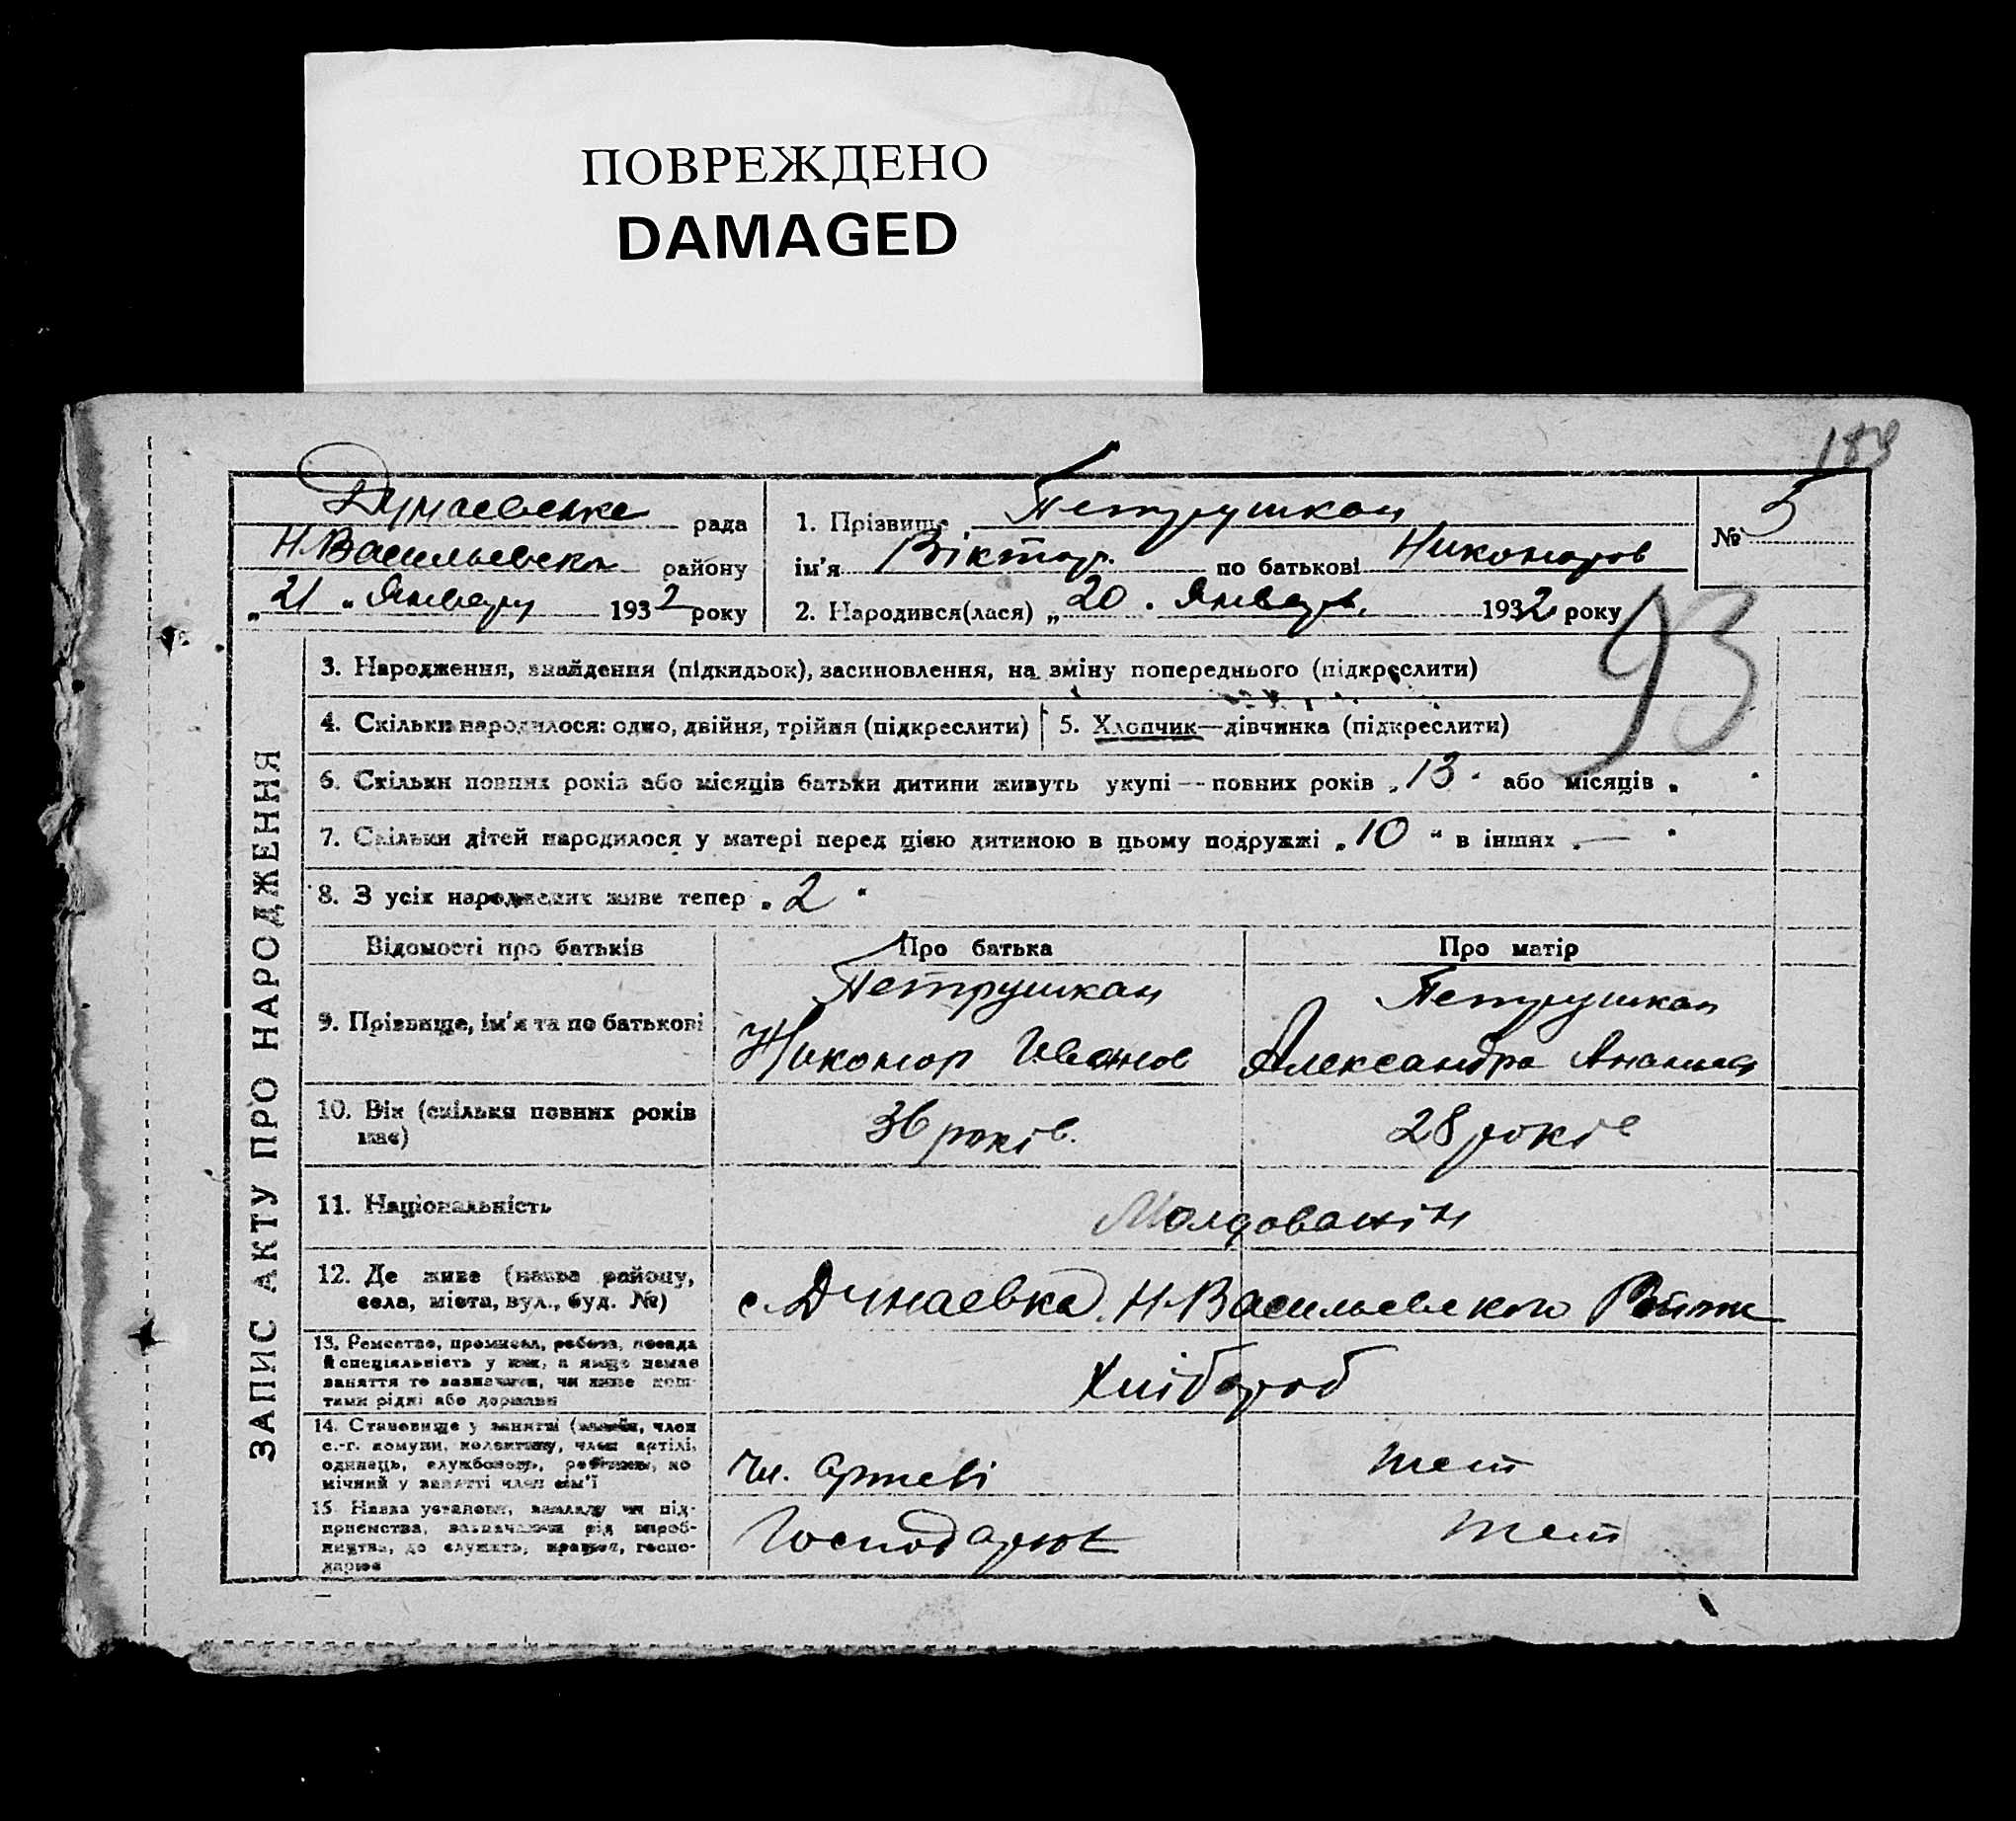 ПОВРЕЖДЕНО
DAMAGED
183
Дунаевська рада
Н.Васильевско району
„21„ Январу 1932 року
1. Прізвище Петрушкан
ім'я Віктор. по батькові Никоноров
№ 5
2. Народився(лася) „20. Январ. 1932 року
93
ЗАПИС АКТУ ПРО НАРОДЖЕННЯ
3. Народження, знайдення (підкидьок), засиновлення, на зміну попереднього (підкреслити)
4. Скільки народилося: одно, двійня, трійня (підкреслити)
5. Хлопчик—дівчинка (підкреслити)
6. Скільки повних років або місяців батьки дитини живуть укупі — повних років „13" або місяців „ "
7. Скільки дітей народилося у матері перед цією дитиною в цьому подружжі „10" в інших „—"
8. З усіх народжених живе тепер „2"
Відомості про батьків Про батька Про матір
9. Прізвище, ім'я та по батькові
Петрушкан
Никонор Иванов
Петрушкан
Александра Ананиев
10. Вік (скільки повних років
має)
36 років.
28 років
11. Національність
Молдованін
12. Де живе (назва району,
села, міста, вул., буд. №)
с. Дунаевка. Н.Васильевского Район
13. Ремество, промисел, робота, посада
й спеціяльність у них, а якщо немає
заняття то зазначити, чи живе кош-
тами рідні або держави
Хлібороб
14. Становище у занятті (хазяїн, член
с.-г. комуни, колективу, член артілі,
одинець, службовець, робітник, по
мічний у занятті член сім'ї
Чл. Артелі
тет
15. Назва установи, закладу чи під-
приємства, зазначаючи рід вироб-
ництва, де служить, працює, госпо-
дарює
Господарює
тет